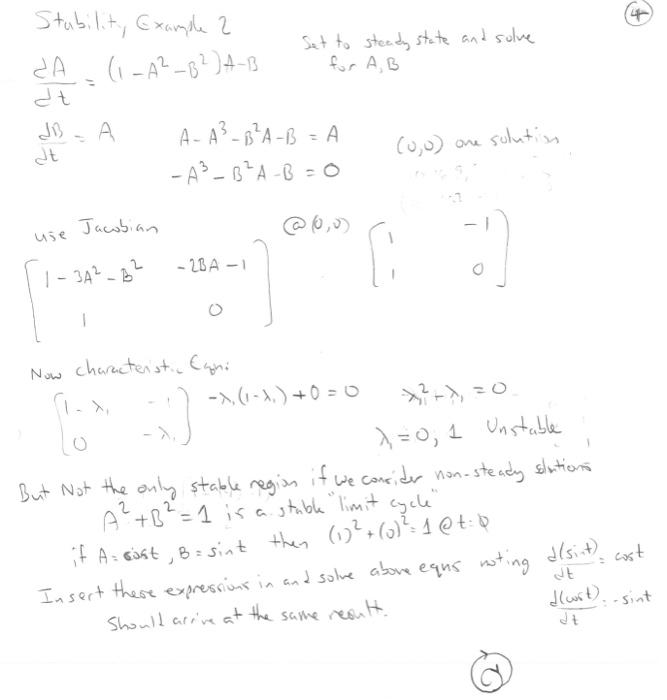 Stability Example 2
4
dA/dt = (1-A²-B²)A-B
Set to steady state and solve
for A, B
dB/dt = A
A-A³-B²A-B = A
-A³-B²A-B = 0
(0,0) one solution
use Jacobian
@(0,0)
[1-3A²-B² -2BA-1
1 0]
[1 -1
1 0]
Now characteristic Eqn:
[1-λ₁ -1
0 -λ₁]
-λ₁(1-λ₁)+0=0
λ₁²+λ₁=0
λ₁=0, 1 Unstable
But Not the only stable region if we consider non-steady slutions
A²+B²=1 is a stable "limit cycle"
if A=cost, B=sint then (1)²+(0)²=1 @ t=0
Insert these expressions in and solve above eqns noting d(sint)/dt = cost
d(cost)/dt = -sint
Should arrive at the same result.